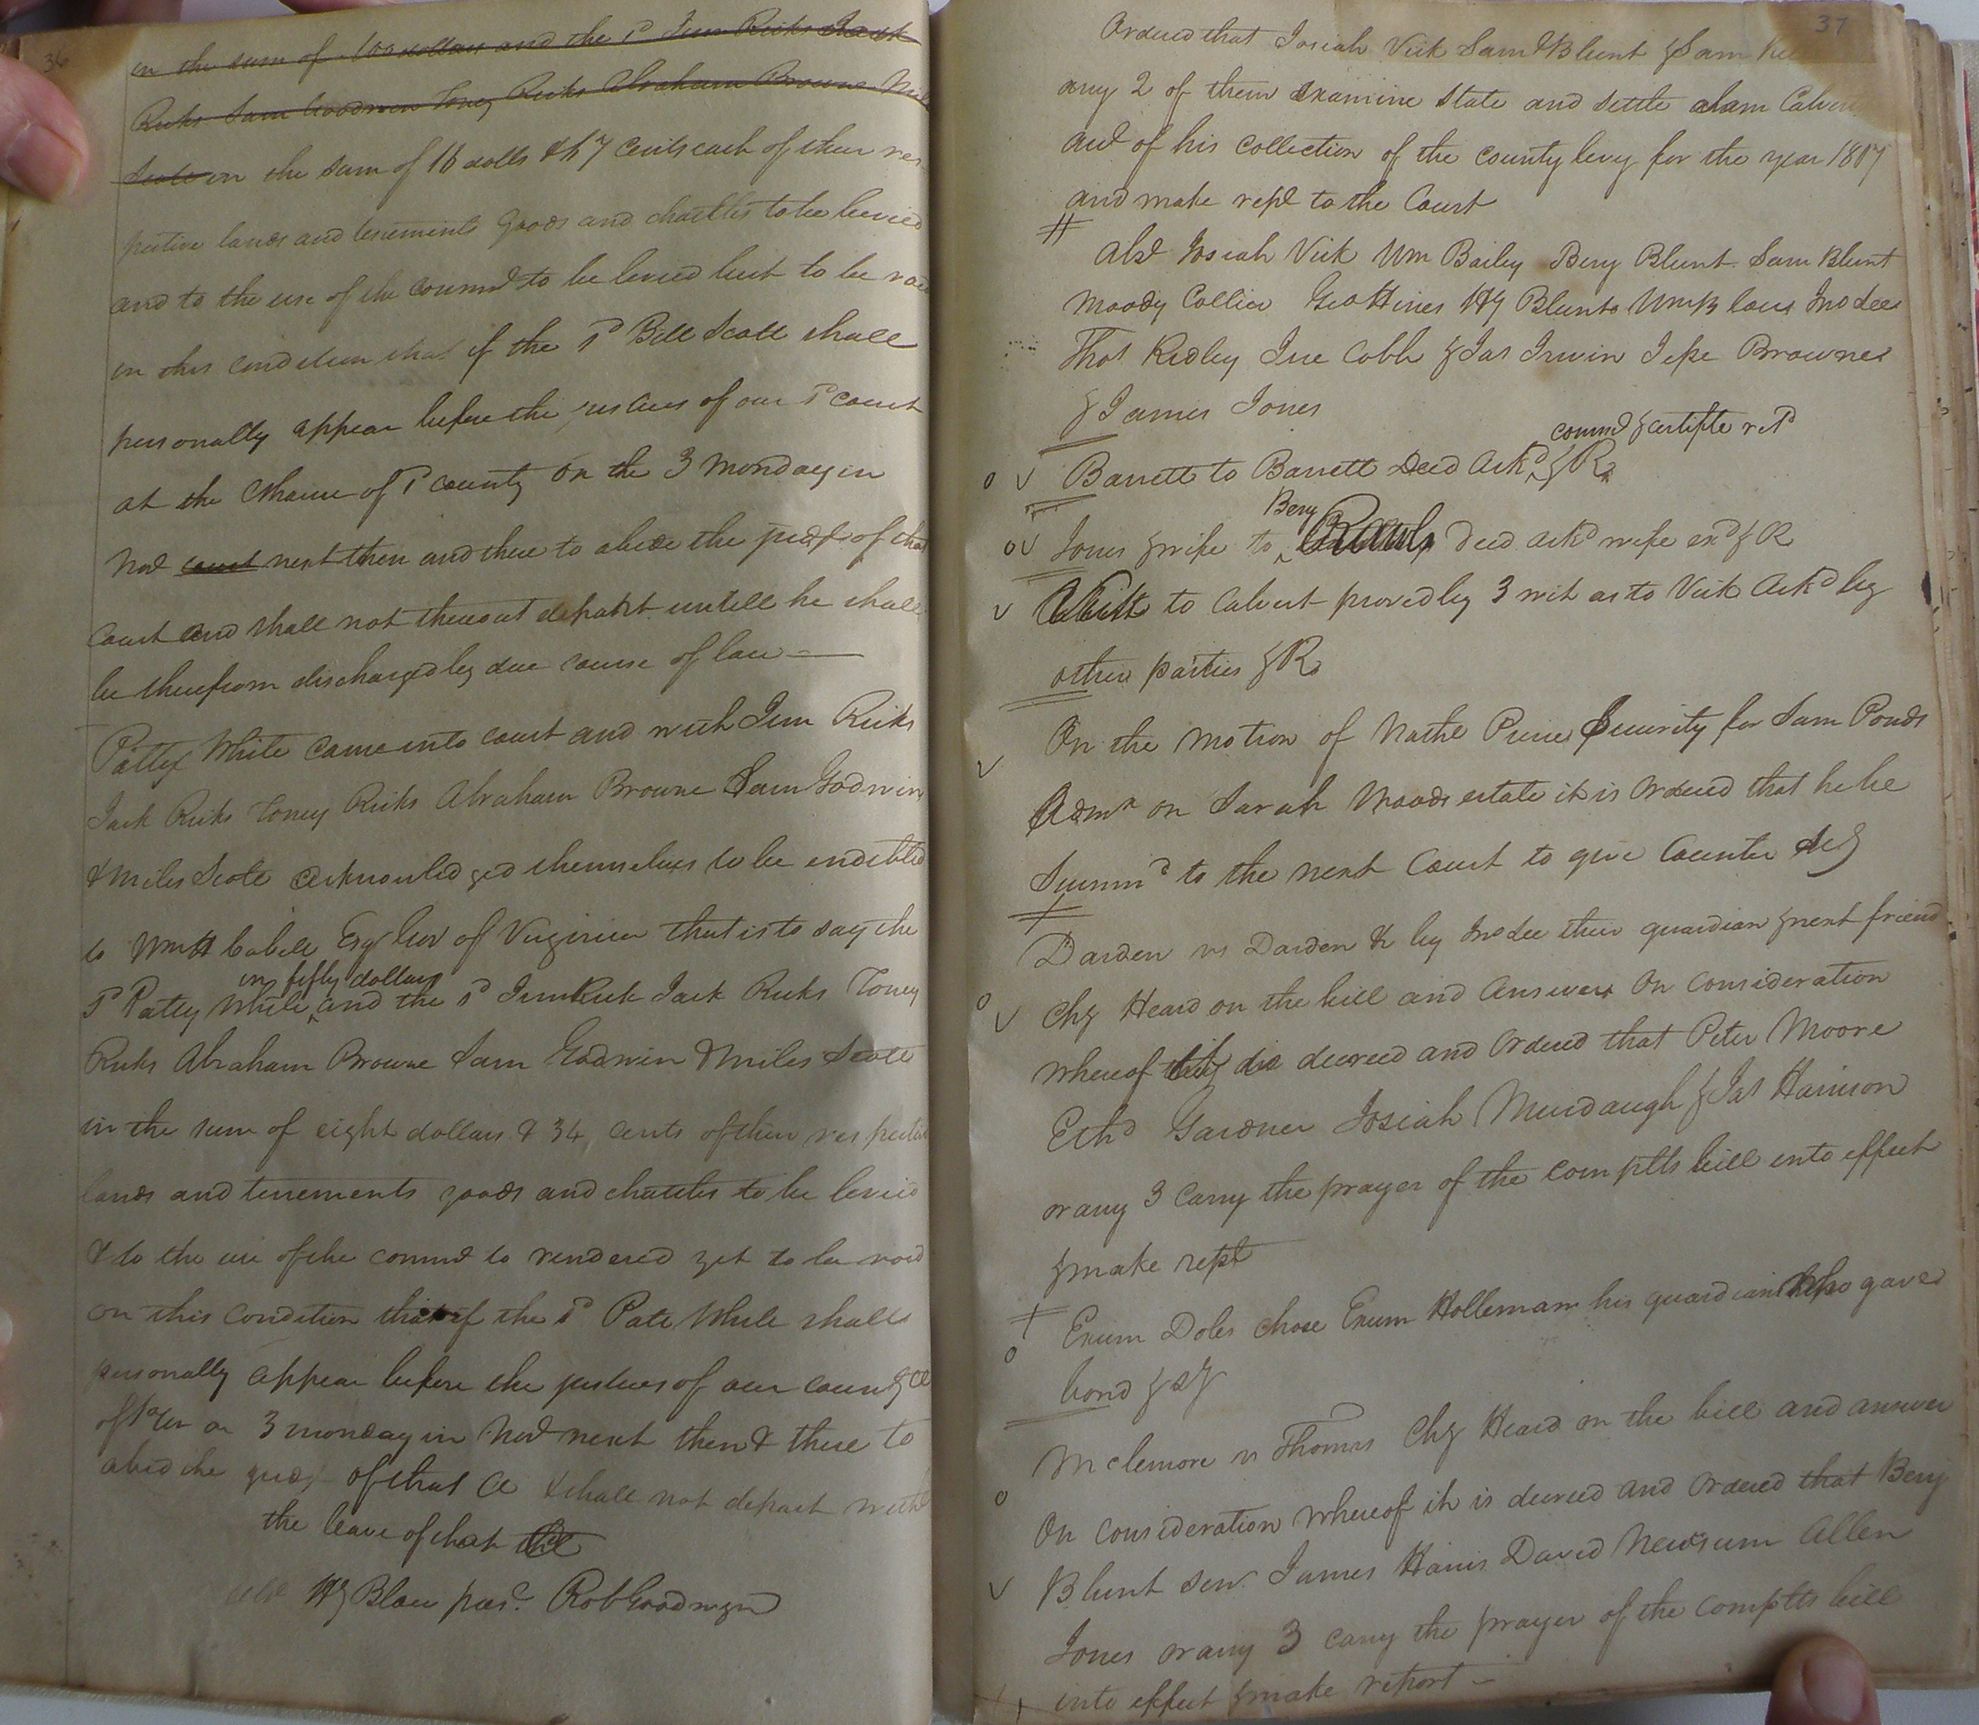 36
in the sum of 100 dollars and the sd Jim Ricks Jack
Ricks Sam Goodwin Toney Ricks Abraham Browne Miles
Scott in the sum of 16 dolls & 67 cents each of their res
pective lands and tenements goods and chattles to be levied
and to the use of the commd to be levied but to be void
on this condition that if the sd Bill Scott shall
personally appear before the justices of our sd court
at the Cthouse of sd county on the 3 monday in
Nov court next then and there to abide the judgt of that
Court and shall not thereout depart untill he shall
be therefrom discharged by due course of law
Patty White came into court and with Jim Ricks
Jack Ricks Toney Ricks Abraham Browne Sam Godwin
& Miles Scott acknowledged themselves to be indebted
to Wm H Cabell Esqr Gov of Virginia that is to say the
in fifty dollars
sd Patty White and the sd Jim Rick Jack Ricks Toney
Ricks Abraham Browne Sam Godwin & Miles Scott
in the sum of eight dollars & 34 cents of their respective
lands and tenements goods and chattles to be levied
& to the use of the commd to rendered yet to be void
on this condition that if the sd Pate White shall
personally appear before the justices of our county
on 3 monday in Nov next then & there to
abid the judgt of that Ct & shall not depart witht
the leave of that
Hy Blow pres. Rob Goodwyn
37
Ordered that Josiah Vick Saml Blunt & Sam
any 2 of them examine state and settle Calvert
act of his collection of the county levy for the year 1807
and make rept to the Court
Abst Josiah Vick Wm Bailey Benj Blunt Sam Blunt
Moody Collier Geo Hines Hy Blunt Wm B Jno Lee
Thos Ridley Cobb & Jas Irwin Jesse Browne
& James Jones
commd & certifte retd
Barrett to Barrett Deed Ackd & R
Benj
Jones & wife to Deed ackd wife exd & R
Vick to Calvert proved by 3 wit as to Vick Ackd by
other parties & R
On the motion of Nathl Security for Sam Ponds
Admr on Sarah Woods estate it is ordered that he be
Summd to the next Court to give Counter Secy
Darden vs Darden & by Jno Lee their guardian & next friend
Chy Heard on the bill and answers On consideration
whereof decreed and ordered that Peter Moore
Ethd Gardner Josiah Murdaugh & Jas Harrison
or any 3 carry the prayer of the complts bill into effect
& make rept
Exum Doles chose Exum Holleman his guardian who gave
bond & Sy
Mclemore vs Thomas Chy Heard on the bill and answer
On consideration whereof it is decreed and ordered that Benj
Blunt senr James Harris David Newsum Allen
Jones or any 3 carry the prayer of the complts bill
into effect & make report